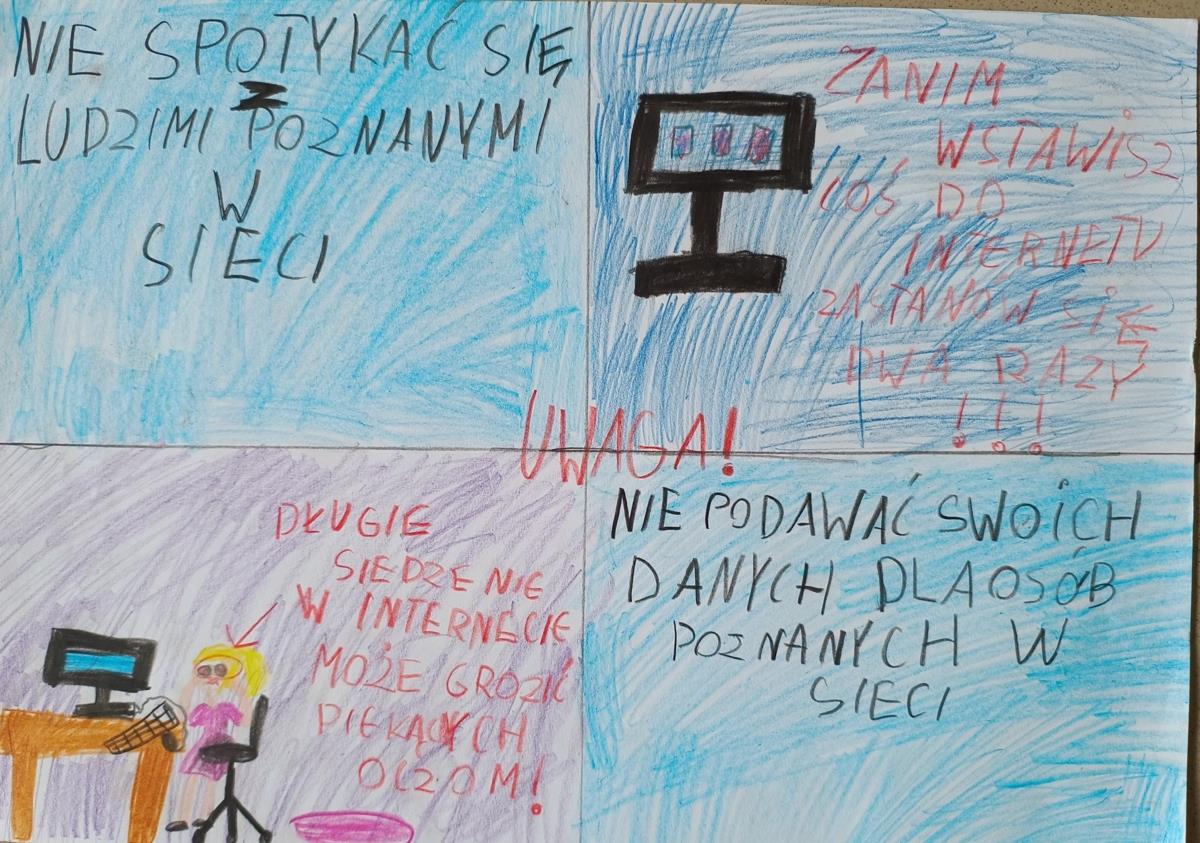 NIE SPOTYKAĆ SIĘ
Z
LUDZIMI POZNANYMI
W
SIECI
ZANIM
WSTAWISZ
COŚ DO
INTERNETU
ZASTANÓW SIĘ
DWA RAZY
!!!
UWAGA!
DŁUGIE
SIEDZENIE
W INTERNECIE
MOŻE GROZIĆ
PIEKĄCYCH
OCZOM!
NIE PODAWAĆ SWOICH
DANYCH DLA OSÓB
POZNANYCH W
SIECI